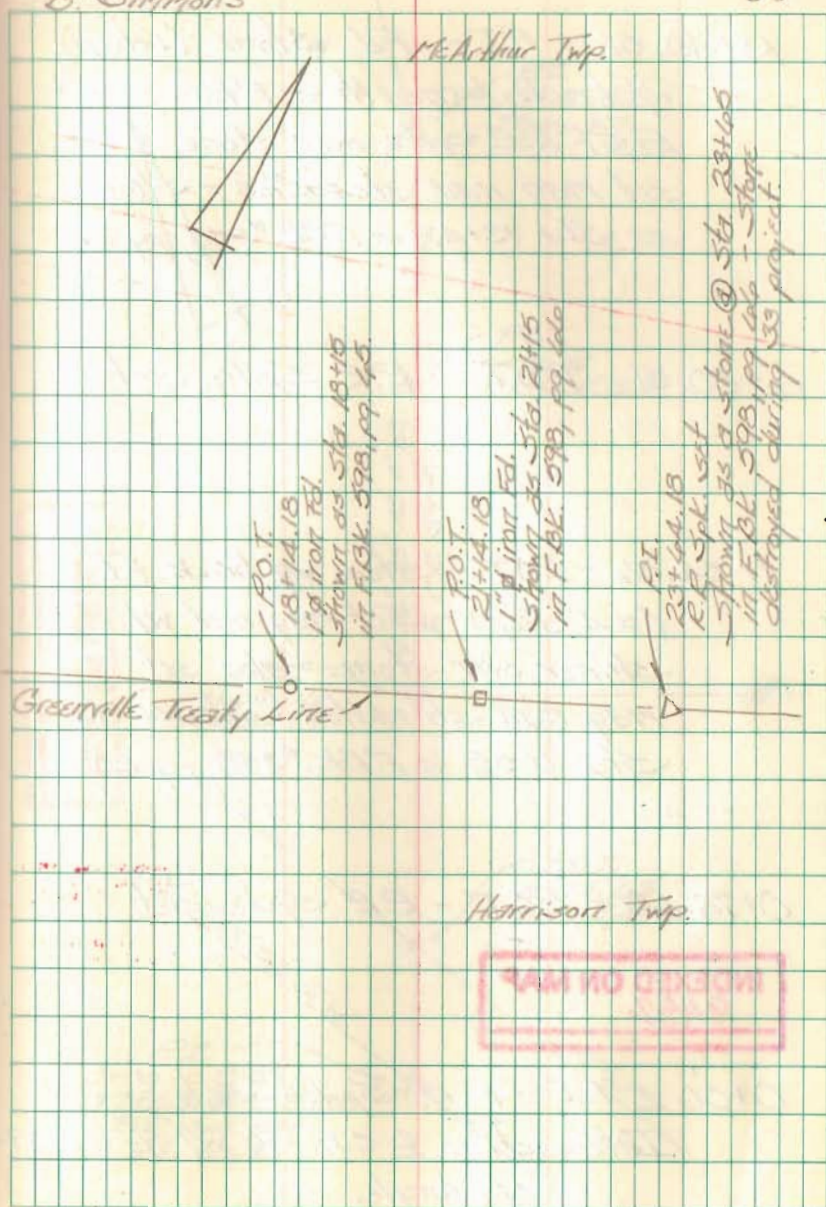 B. Simmons
McArthur Twp.
P.O.T.
18+14.18
1"ø iron Fd.
Shown as Sta. 18+15
in F.BK. 598, pg. 65.
P.O.T.
21+14.18
1"ø iron Fd.
Shown as Sta. 21+15
in F.BK. 598, pg. 66
P.I.
23+64.18
R.R. Spk. set
Shown as a stone @ Sta. 23+65
in F.BK. 598, pg. 66 - Stone
destroyed during '33 project.
Greenville Treaty Line
Harrison Twp.
INDEXED ON MAP